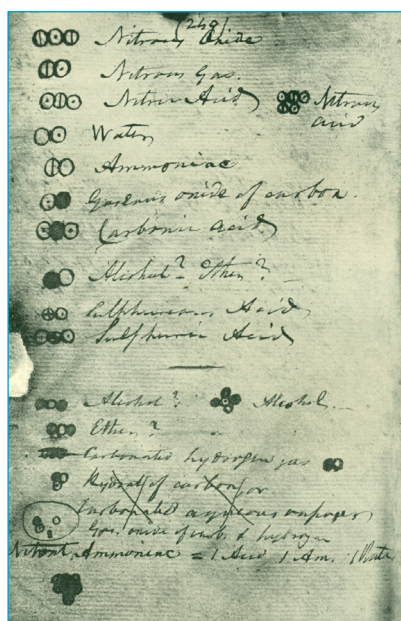 (248)
Nitrous Oxide
Nitrous Gas.
Nitric Acid Nitrous
acid
Water
Ammoniac
Gaseous oxide of carbon.
Carbonic acid
Alcohol? Ether?
Sulphureous Acid
Sulphuric Acid
Alcohol? Alcohol
Ether?
Carbonated hydrogen gas
Hydrat of carbon or
Carbonated aqueous vapour
Gas. oxide of carb. & hydrogen
Nitrat Ammoniac = 1 Acid 1 Am. 1 Water